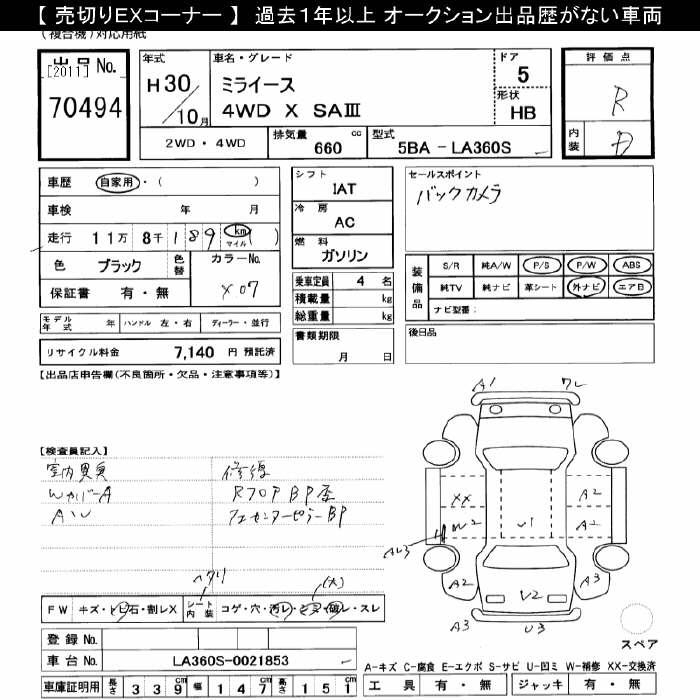 【 売切りEXコーナー 】 過去1年以上 オークション出品歴がない車両
(複合機)対応用紙
出品 No.
[2011]
70494
年式
H30/10月
車名・グレード
ミライース
4WD X SAⅢ
ドア
5
形状
HB
評価点
R
内装
D
2WD・4WD
排気量
660
cc
型式
5BA - LA360S
車歴
自家用・( )
車検 年 月
走行 11万 8千 189 km マイル ( )
色 ブラック
色替
カラーNo.
X07
保証書 有・無
モデル年式 年
ハンドル 左・右
ディーラー・並行
リサイクル料金 7,140 円 預託済
シフト
IAT
冷房
AC
燃料
ガソリン
乗車定員 4 名
積載量 kg
総重量 kg
書類期限
月 日
セールスポイント
バックカメラ
装備品
S/R 純A/W P/S P/W ABS
純TV 純ナビ 革シート 外ナビ エアB
ナビ型番:
後日品
【出品店申告欄(不良箇所・欠品・注意事項等)】
【検査員記入】
室内異臭
WカバーA
Aハレ
修復
R70P BP歪
フェセンターピラーBP
ヘタリ
(大)
FW キズ・トビ石・割レX
シート内装
コゲ・穴・汚レ・シミ・破レ・スレ
A1
フレ
XX
A2
W2
A2
U1
AU3
A2
U2
A3
A3
U3
スペア
登録 No.
車台 No. LA360S-0021853
車庫証明用 長さ 339 cm 幅 147 cm 高さ 151 cm
A-キズ C-腐食 E-エクボ S-サビ U-凹ミ W-補修 XX-交換済
工具 有・無 ジャッキ 有・無